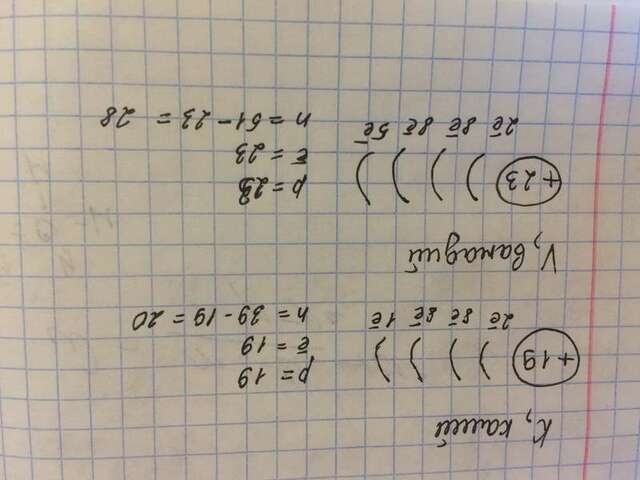 K, калий
+19 ) ) ) )
2ē 8ē 8ē 1ē
p = 19
ē = 19
n = 39 - 19 = 20
V, ванадий
+23 ) ) ) )
2ē 8ē 8ē 5ē
p = 23
ē = 23
n = 51 - 23 = 28